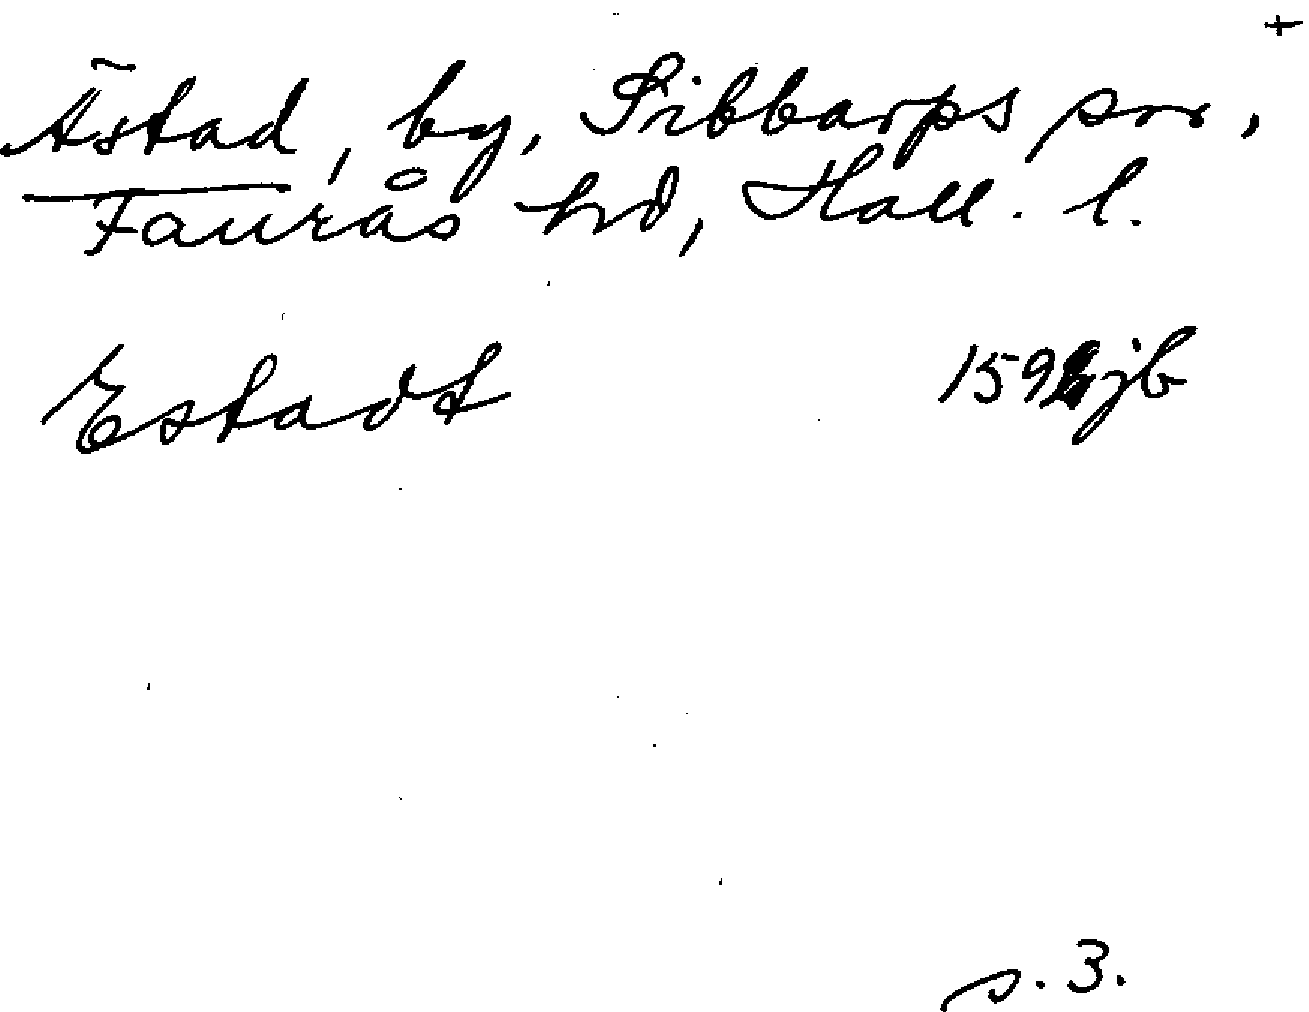 +
Ästad, by, Sibbarps sn,
Faurås hd, Hall. l.
Estadt jb
s. 3.